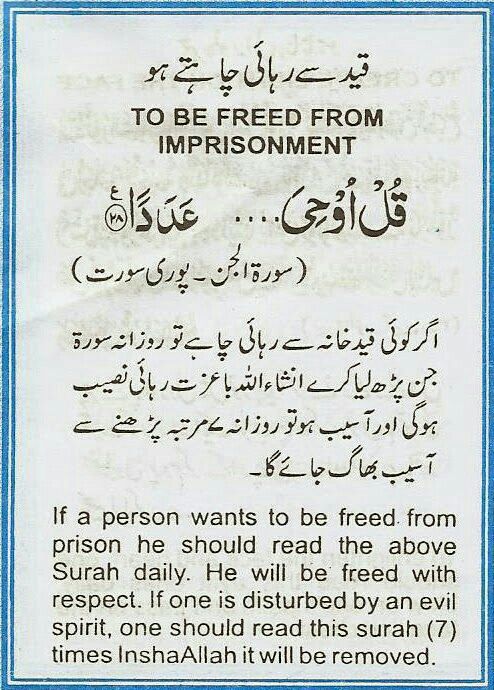 قید سے رہائی چاہتے ہو
TO BE FREED FROM
IMPRISONMENT
قُلْ اُوْحِیَ .... عَدَدًا ﴿۲۸﴾ ع
(سورۃ الجن ۔ پوری سورت)
اگر کوئی قید خانہ سے رہائی چاہے تو روزانہ سورۃ
جن پڑھ لیا کرے انشاء اللہ باعزت رہائی نصیب
ہوگی اور آسیب ہو تو روزانہ ۷ مرتبہ پڑھنے سے
آسیب بھاگ جائے گا۔
If a person wants to be freed from
prison he should read the above
Surah daily. He will be freed with
respect. If one is disturbed by an evil
spirit, one should read this surah (7)
times InshaAllah it will be removed.